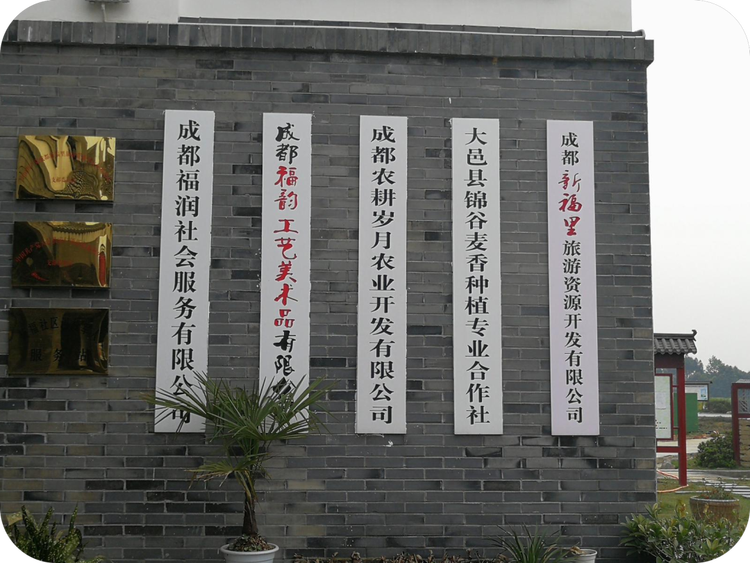 成都福润社会服务有限公司
成都福韵工艺美术品有限公司
成都农耕岁月农业开发有限公司
大邑县锦谷麦香种植专业合作社
成都新福里旅游资源开发有限公司